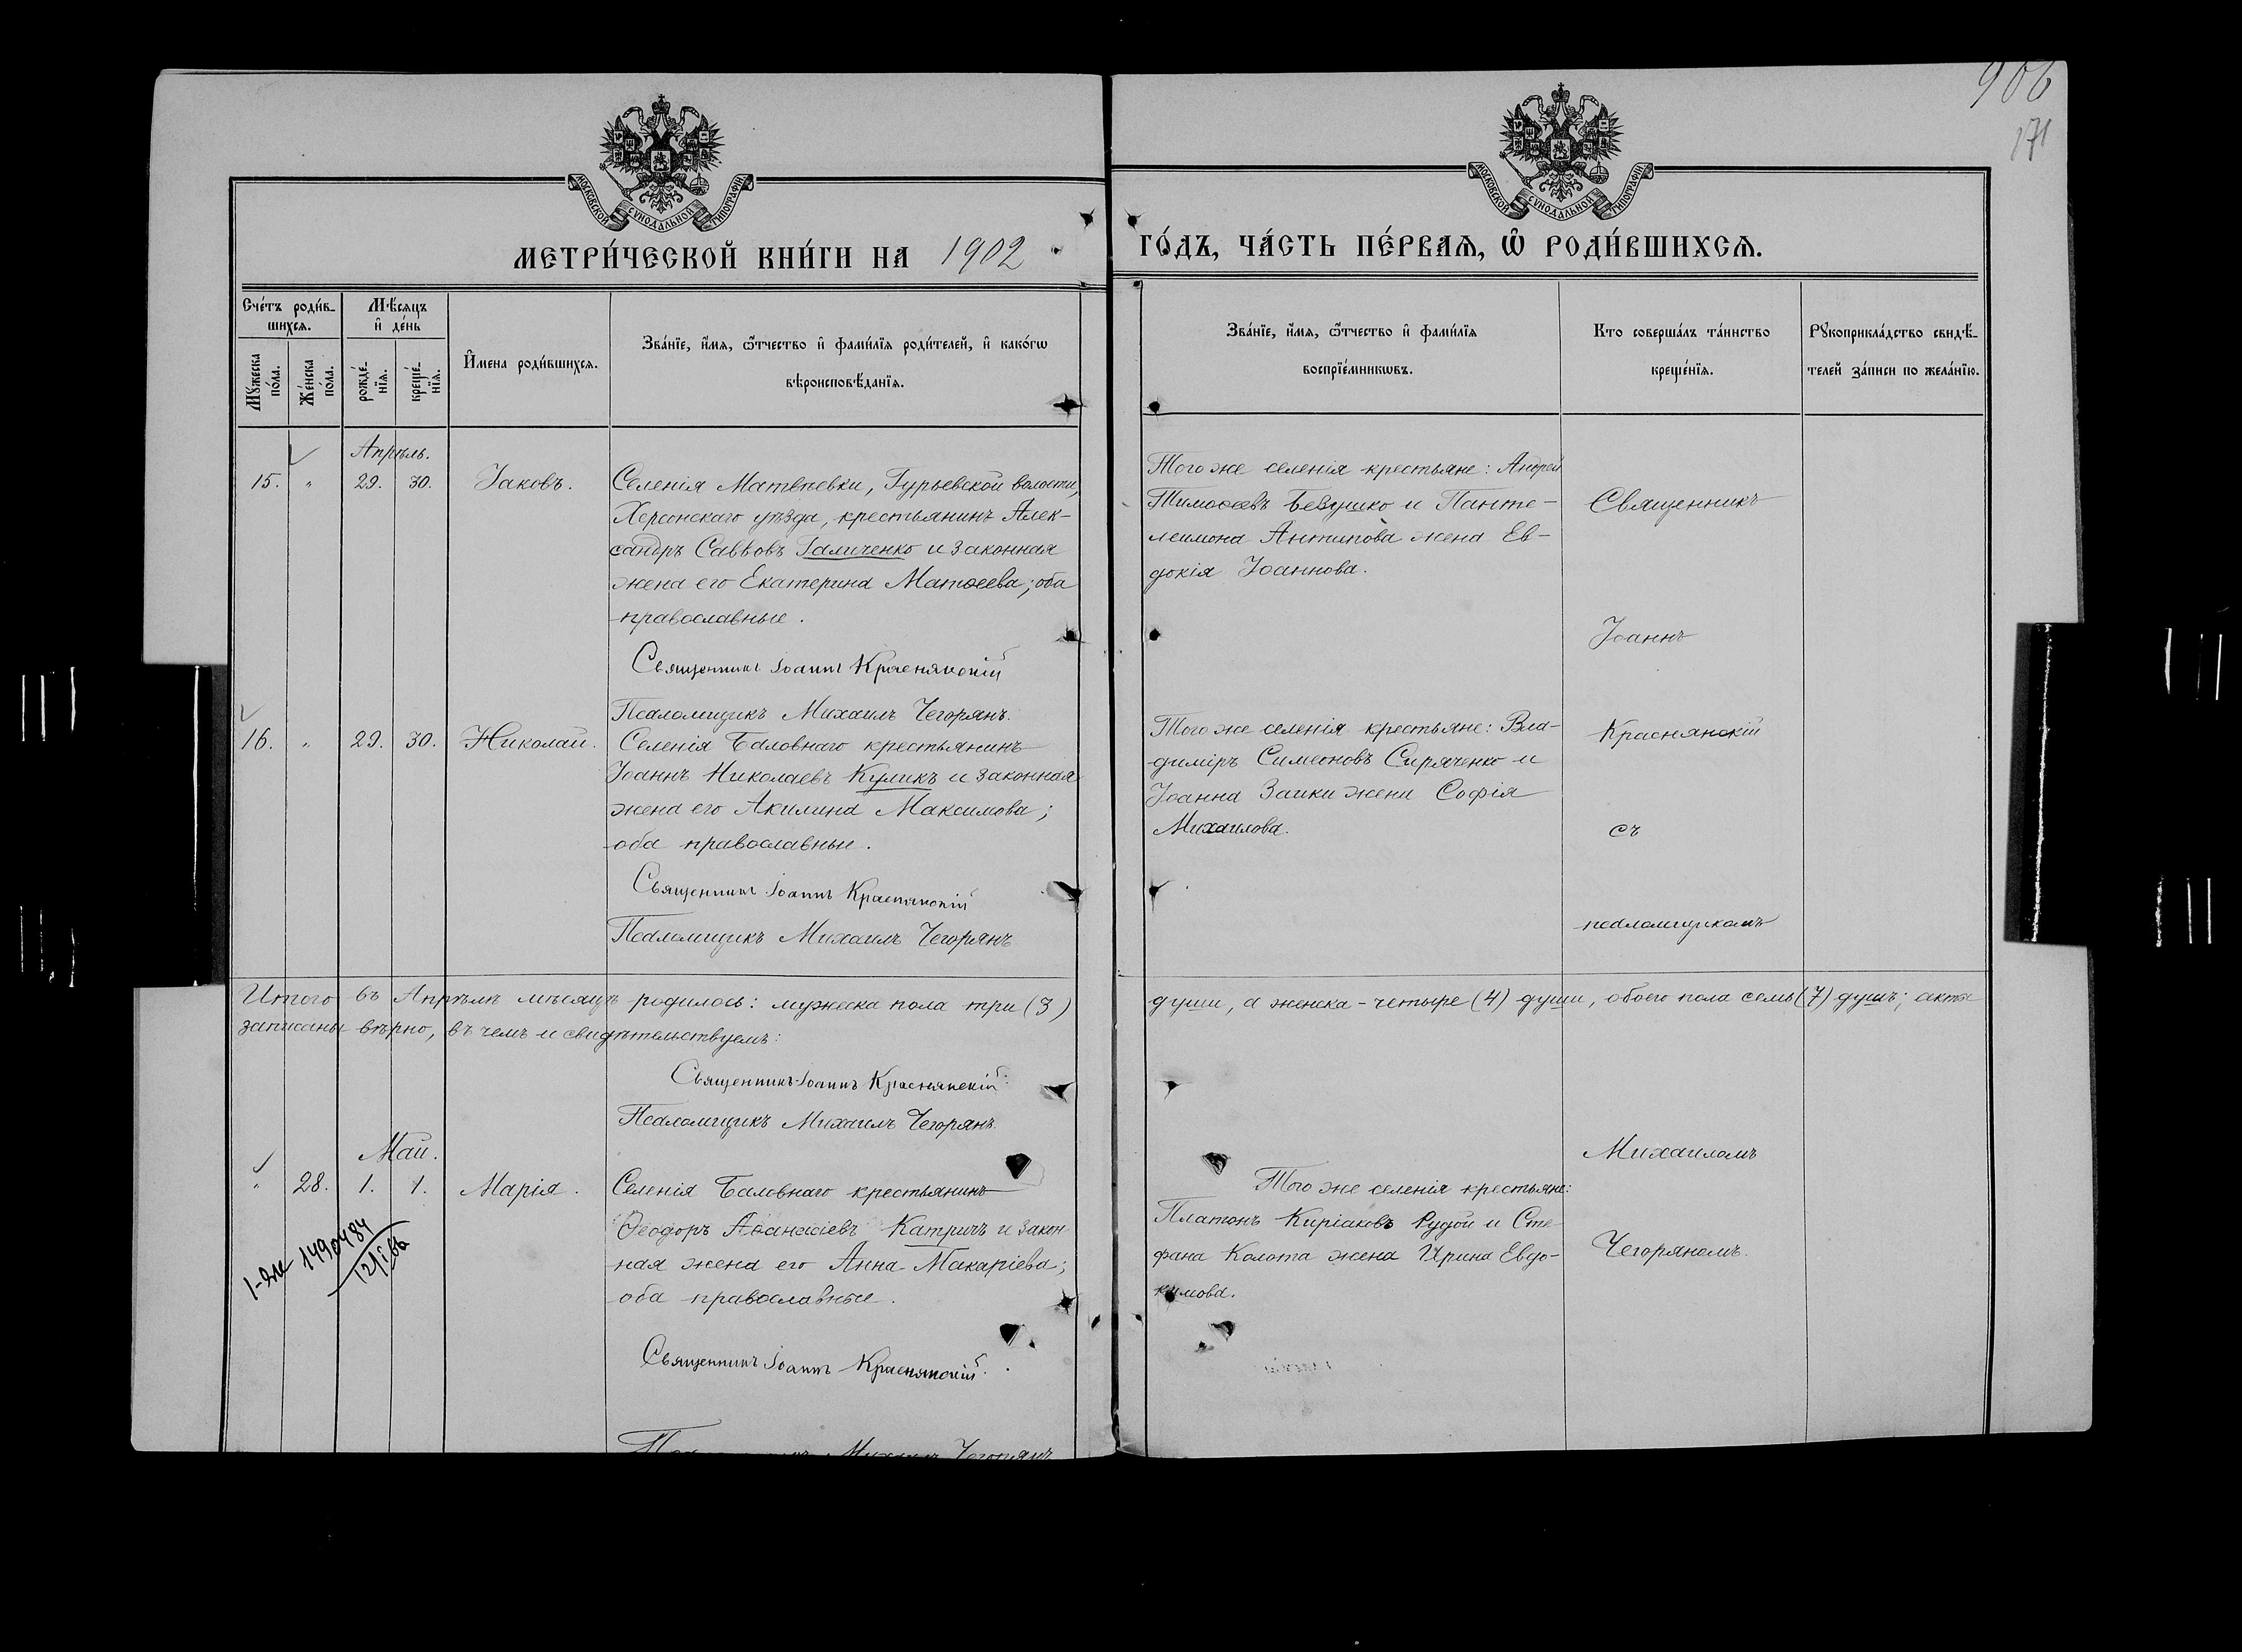 906
171
МОСКОВСКОЙ СѴНОДАЛЬНОЙ ТИПОГРАФІИ
МОСКОВСКОЙ СѴНОДАЛЬНОЙ ТИПОГРАФІИ
МЕТРИ́ЧЕСКОЙ КНИ́ГИ НА 1902
ГО́ДЪ, ЧА́СТЬ ПЕ́РВАѦ, Ѡ҆ РОДИ́ВШИХСѦ.
Сче́тъ роди́в-
шихсѧ.
Мꙋжеска по́ла.
Же́нска по́ла.
Мѣ́сѧцъ
и҆ де́нь
рожде́-
нїѧ.
креще́-
нїѧ.
И҆мена роди́вшихсѧ.
Зва́нїе, и҆́мѧ, ѻ҆́тчество и҆ фами́лїѧ роди́телей, и҆ како́гѡ
вѣроисповѣ́данїѧ.
Зва́нїе, и҆́мѧ, ѻ҆́тчество и҆ фами́лїѧ
воспрїе́мникѡвъ.
Кто соверша́лъ та́инство
креще́нїѧ.
Рꙋкоприкла́дство свидѣ́-
телей за́писи по жела́нїю.
Апрѣль.
15. " 29. 30. Іаковъ.
Селенія Матвѣевки, Гурьевской волости,
Херсонскаго уѣзда, крестьянинъ Алек-
сандръ Саввовъ Галиченко и законная
жена его Екатерина Матѳеева; оба
православные.
Священникъ Іоаннъ Краснянскій
Псаломщикъ Михаилъ Чегорянъ.
Того же селенія крестьяне: Андрей
Тимоѳеевъ Бевушко и Панте-
леимона Антипова жена Ев-
докія Іоаннова.
Священникъ
Іоаннъ
16. " 29. 30. Николай.
Селенія Баловнаго крестьянинъ
Іоаннъ Николаевъ Куликъ и законная
жена его Акилина Максимова;
оба православные.
Священникъ Іоаннъ Краснянскій
Псаломщикъ Михаилъ Чегорянъ
Того же селенія крестьяне: Вла-
диміръ Симеоновъ Сиряченко и
Іоанна Заики жена Софія
Михаилова.
Краснянскій
съ
псаломщикомъ
Итого въ Апрѣлѣ мѣсяцѣ родилось: мужеска пола три (3) души, а женска - четыре (4) души, обоего пола семь (7) душъ; акты
записаны вѣрно, въ чемъ и свидѣтельствуемъ:
Священникъ Іоаннъ Краснянскій
Псаломщикъ Михаилъ Чегорянъ.
Май.
" 28. 1. 1. Марія.
Селенія Баловнаго крестьянинъ
Ѳеодоръ Аѳанасіевъ Катричъ и закон-
ная жена его Анна Макаріева;
оба православные.
Священникъ Іоаннъ Краснянскій.
Михаилъ Чегорянъ
Того же селенія крестьяне:
Платонъ Киріаковъ Рудой и Сте-
фана Колота жена Ирина Евдо-
кимова.
Михаиломъ
Чегоряномъ.
1490484